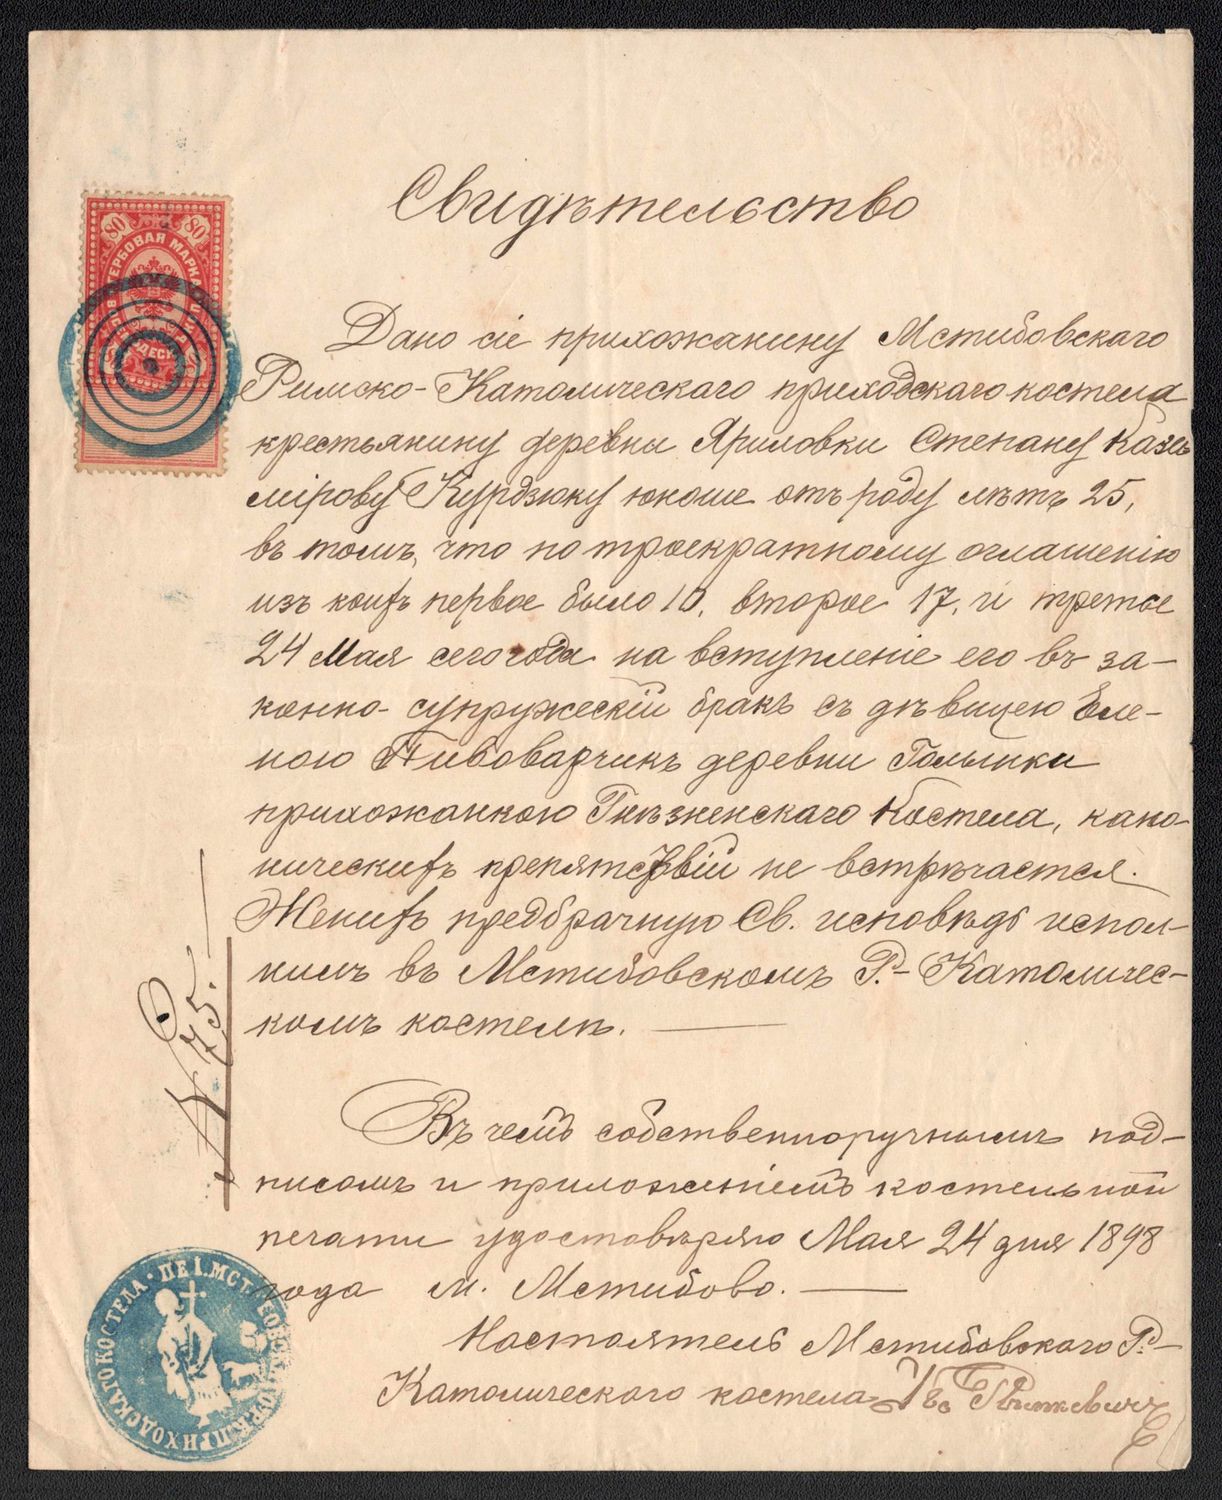 80 80
ГЕРБОВАЯ МАРКА
Свидѣтельство
Дано сіе прихожанину Мстибовскаго
Римско-Католическаго приходскаго костела
крестьянину деревни Яриловки Степану Кази-
мірову Курдзюку юноше отъ роду лѣтъ 25,
въ томъ, что по троекратному оглашенію
изъ коихъ первое было 10, второе 17, и третое
24 Мая сего года на вступленіе его въ за-
конно-супружескій бракъ съ дѣвицею Еле-
ною Пивоварчикъ деревни Голынки
прихожанкою Гнѣзненскаго Костела, кано-
ническихъ препятствій не встрѣчается.
Женихъ предбрачную Св. исповѣдь испол-
нилъ въ Мстибовскомъ Р.-Католичес-
комъ костелѣ.
№ 75.
Въ чемъ собственноручнымъ под-
писомъ и приложеніемъ костельной
печати удостовѣряю Мая 24 дня 1898
года м. Мстибово.
Настоятель Мстибовскаго Р.-
Католическаго костела Кс.
ПРИХОДСКАГО КОСТЕЛА